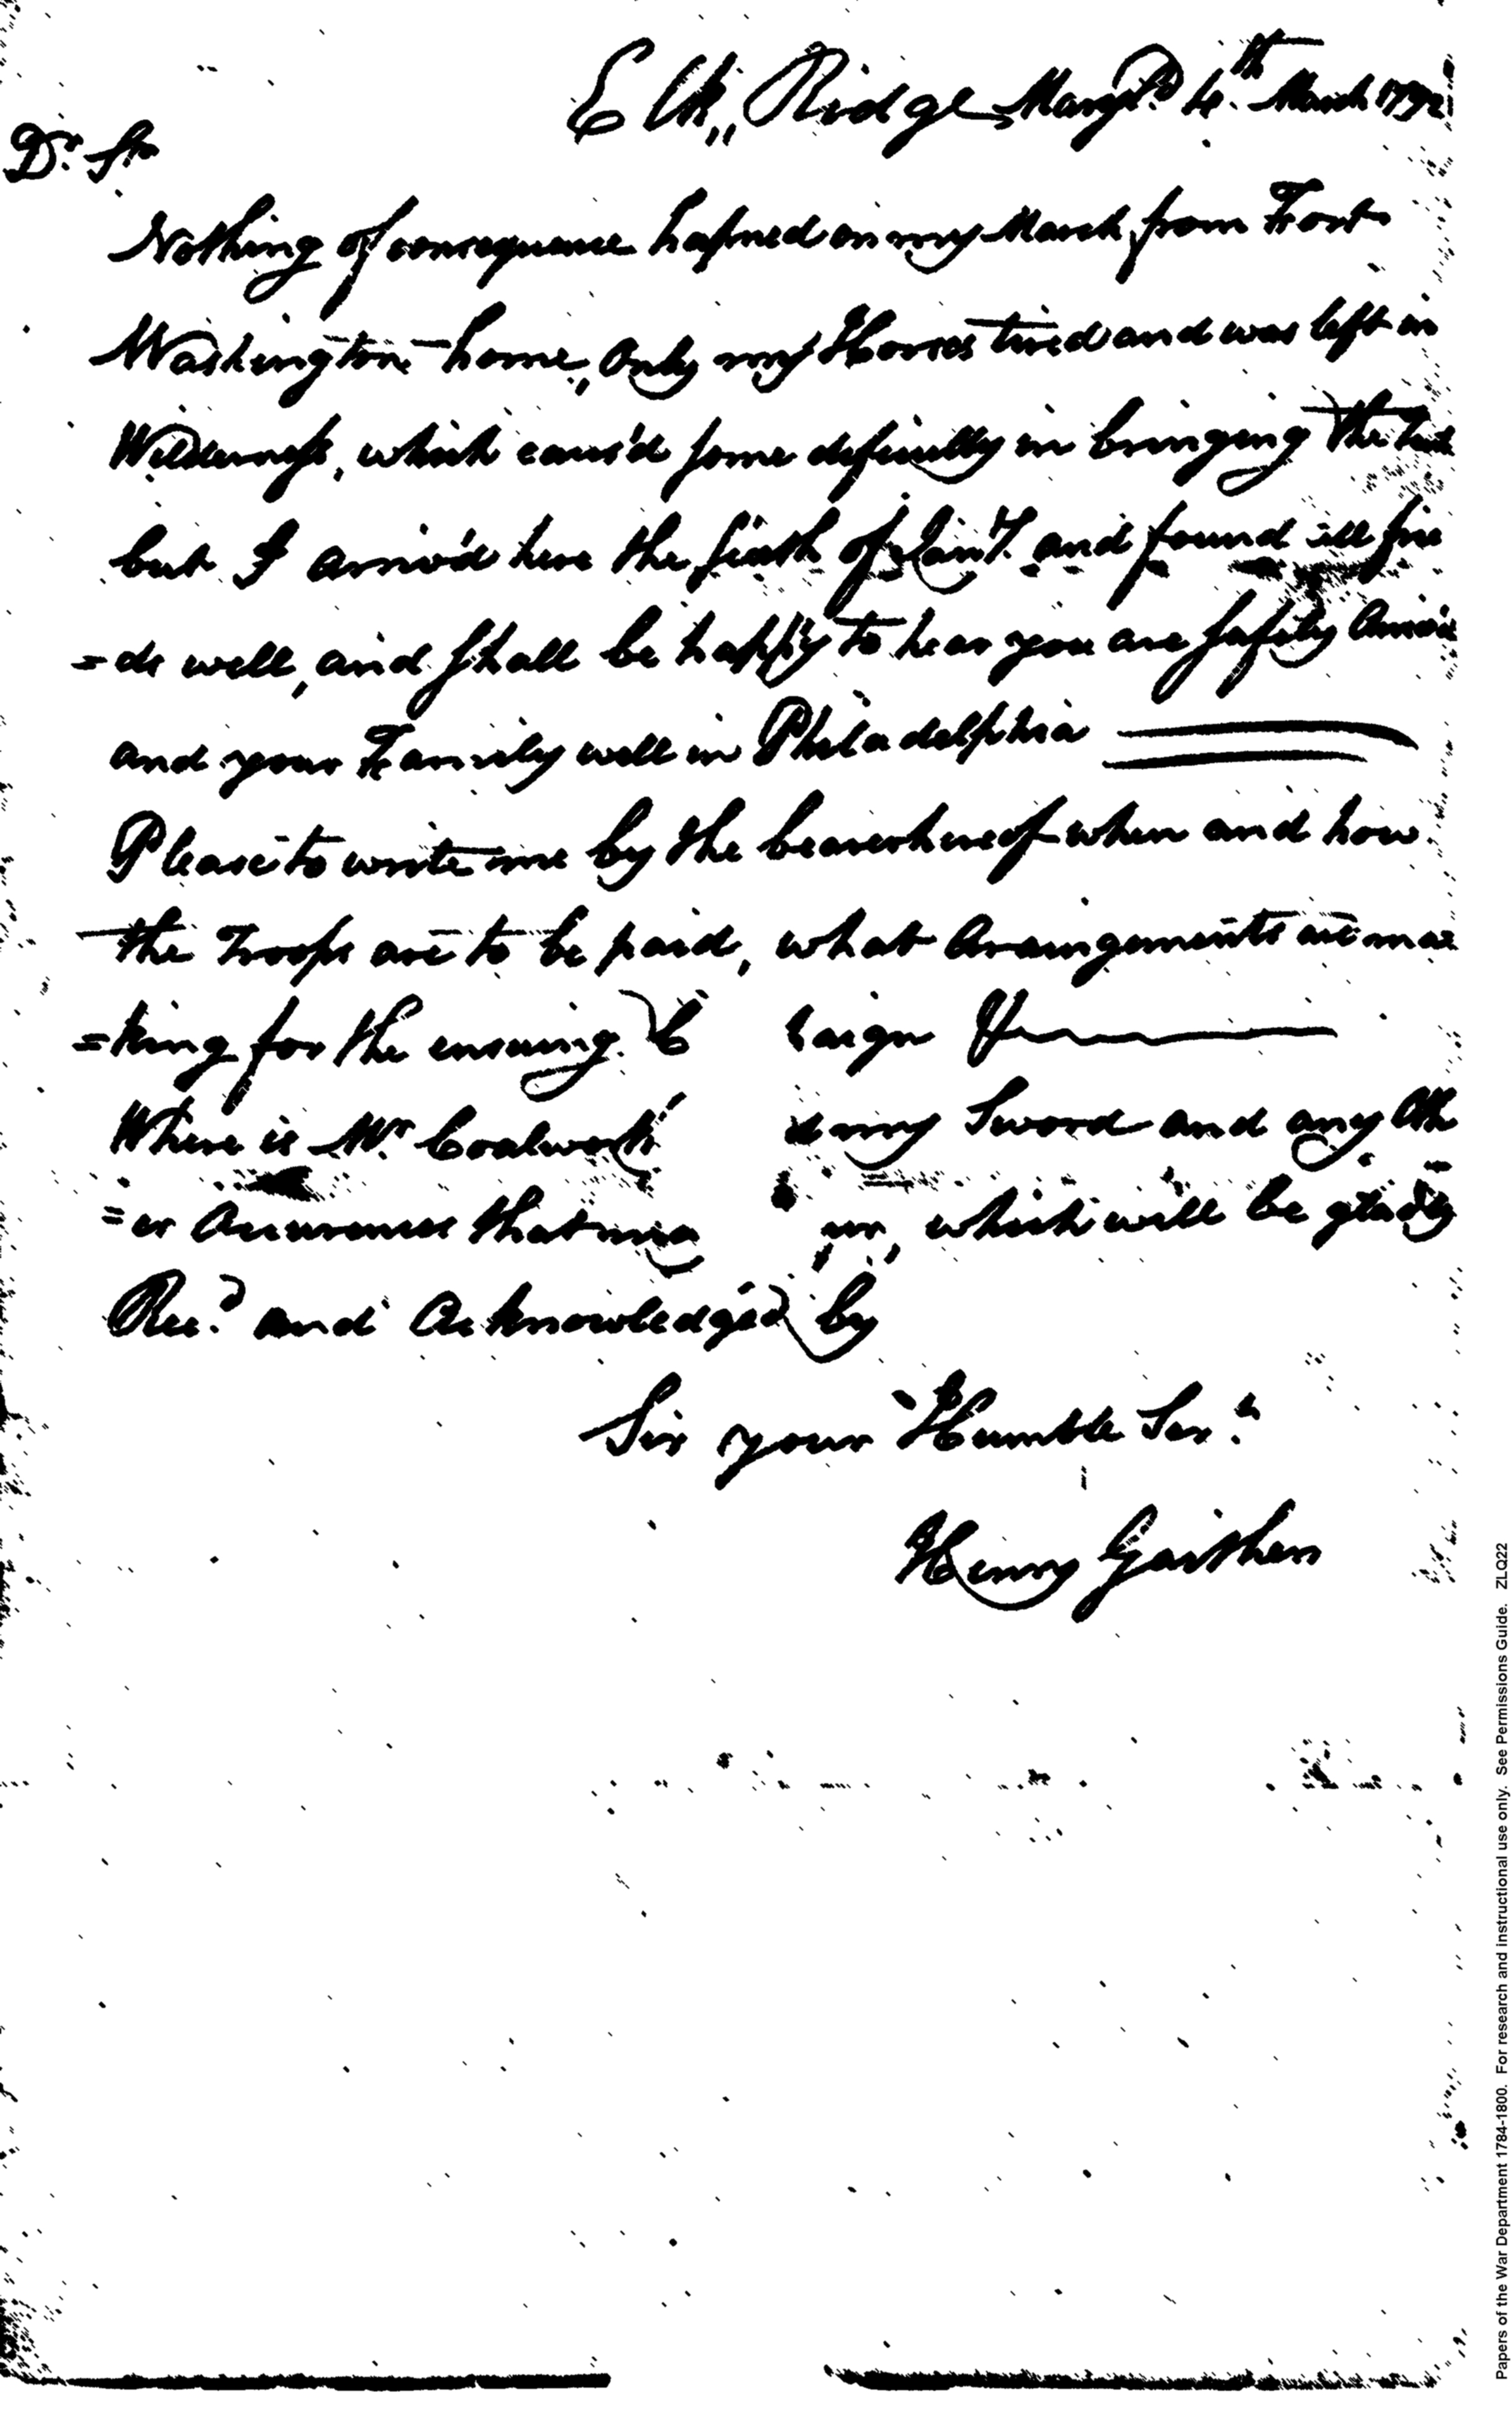 Elk,, Ridge Maryld. 4th. March 1792
Dr. Sr
Nothing of consequence hapned on my March from Fort
Washington home, only my Horses tired and was left in
Wilderness, which caus'd some deficulty in bringing the
but I arriv'd here the sixth of Jan'y. and found all frie
=ds well, and shall be happy to hear you are safely Arriv'd
and your Family well in Philadelphia
Please to write me by the bearer hereof when and how
the Troops are to be paid, what Arangements are ma=
=king for the ensuing C aign
Where is Mr. Coalwort my Sword and any Oth
=er that which will be gladly
Recd. and Acknowledged by
Sir your Humble Sert.
Henry Gaither
Papers of the War Department 1784-1800. For research and instructional use only. See Permissions Guide. ZLQ22